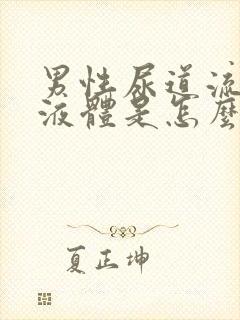 男性尿道流
液體是怎麼
夏正坤